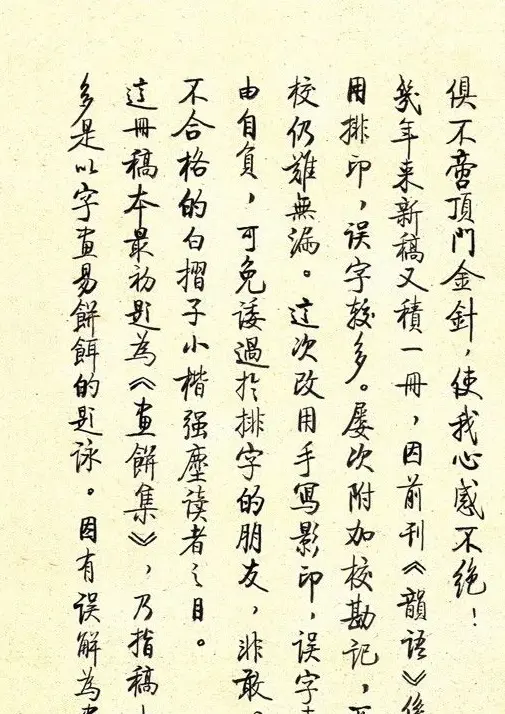 俱不啻頂門金針，使我心感不绝！
幾年来新稿又積一冊，因前刊《韻語》係
用排印，误字較多。屡次附加校勘记，
校仍難無漏。这次改用手寫影印，误字
由自負，可免诿過於排字的朋友，非敢
不合格的白摺子小楷强塵读者之目。
這冊稿本最初题為《畫餅集》，乃指稿
多是以字畫易餅餌的题咏。因有误解為